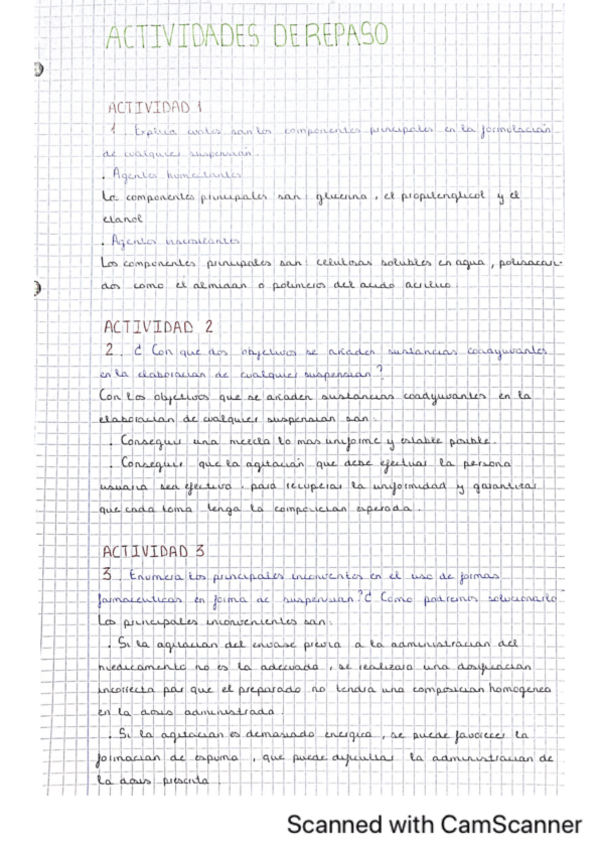 ACTIVIDADES DE REPASO
ACTIVIDAD 1
1. Explica cuales son los componentes principales en la formulación
de cualquier suspensión.
. Agentes humectantes
Los componentes principales son: glicerina, el propilenglicol y el
etanol
. Agentes viscosizantes
Los componentes principales son: celulosas solubles en agua, polisacari-
dos como el almidon o polimeros del acido acrilico.
ACTIVIDAD 2
2. ¿ Con que dos objetivos se añaden sustancias coadyuvantes
en la elaboracion de cualquier suspension?
Con los objetivos que se añaden sustancias coadyuvantes en la
elaboracion de cualquier suspension son:
. Conseguir una mezcla lo mas uniforme y estable posible.
. Conseguir que la agitación que debe efectuar la persona
usuaria sea efectiva, para recuperar la uniformidad y garantizar
que cada toma tenga la composicion esperada.
ACTIVIDAD 3
3. Enumera los principales inconvenientes en el uso de formas
farmaceuticas en forma de suspension?¿ Como podremos solucionarlo
Los principales inconvenientes son:
. Si la agitacion del envase previa a la administracion del
medicamento no es la adecuada, se realizara una dosificacion
incorrecta por que el preparado no tendra una composicion homogenea
en la dosis administrada.
. Si la agitacion es demasiado energica, se puede favorecer la
formacion de espuma, que puede dificultar la administracion de
la dosis prescrita.
Scanned with CamScanner